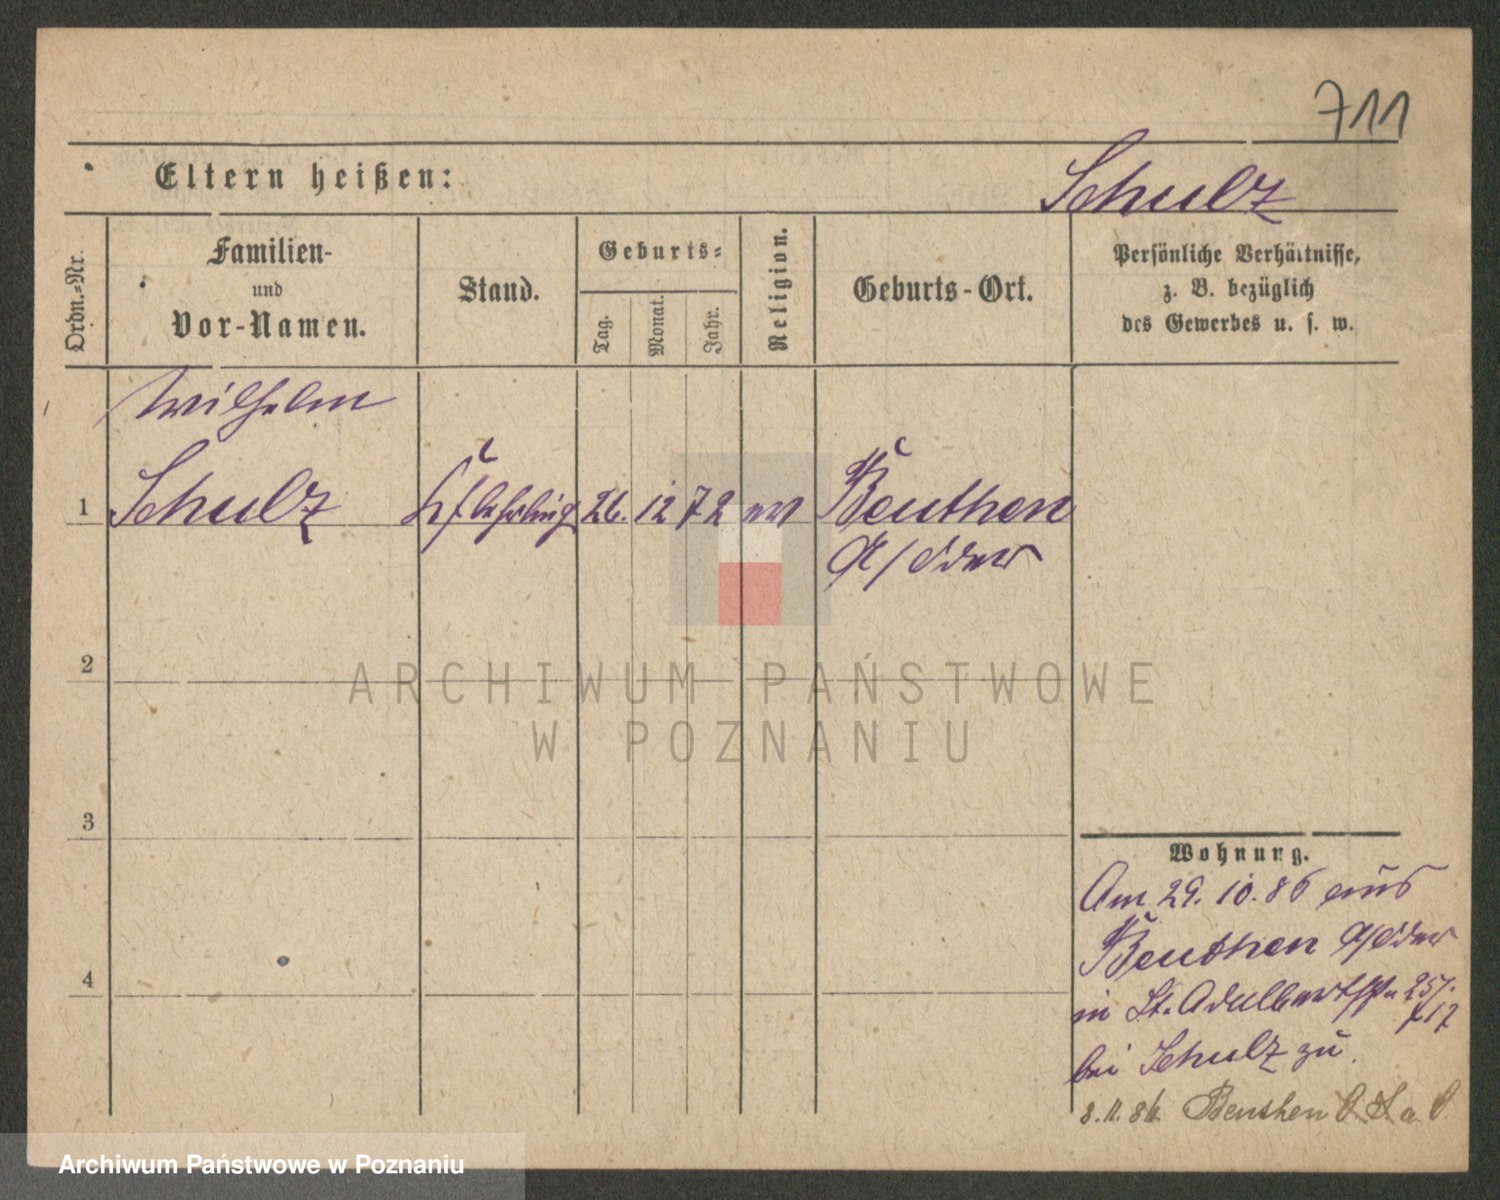 711
Eltern heißen:
Schulz
Ordn.=Nr.
Familien-
und
Vor-Namen.
Stand.
Geburts=
Tag.
Monat.
Jahr.
Religion.
Geburts-Ort.
Persönliche Verhältnisse,
z. B. bezüglich
des Gewerbes u. s. w.
Wilhelm
1 Schulz 26. 12 72 ev Beuthen
a/Oder
2
3
4
Wohnung.
Am 29. 10. 86 aus
Beuthen a/Oder
in St. Adalbertstr
bei Schulz zu.
8. 11. 86. Beuthen
ARCHIWUM PAŃSTWOWE
W POZNANIU
Archiwum Państwowe w Poznaniu